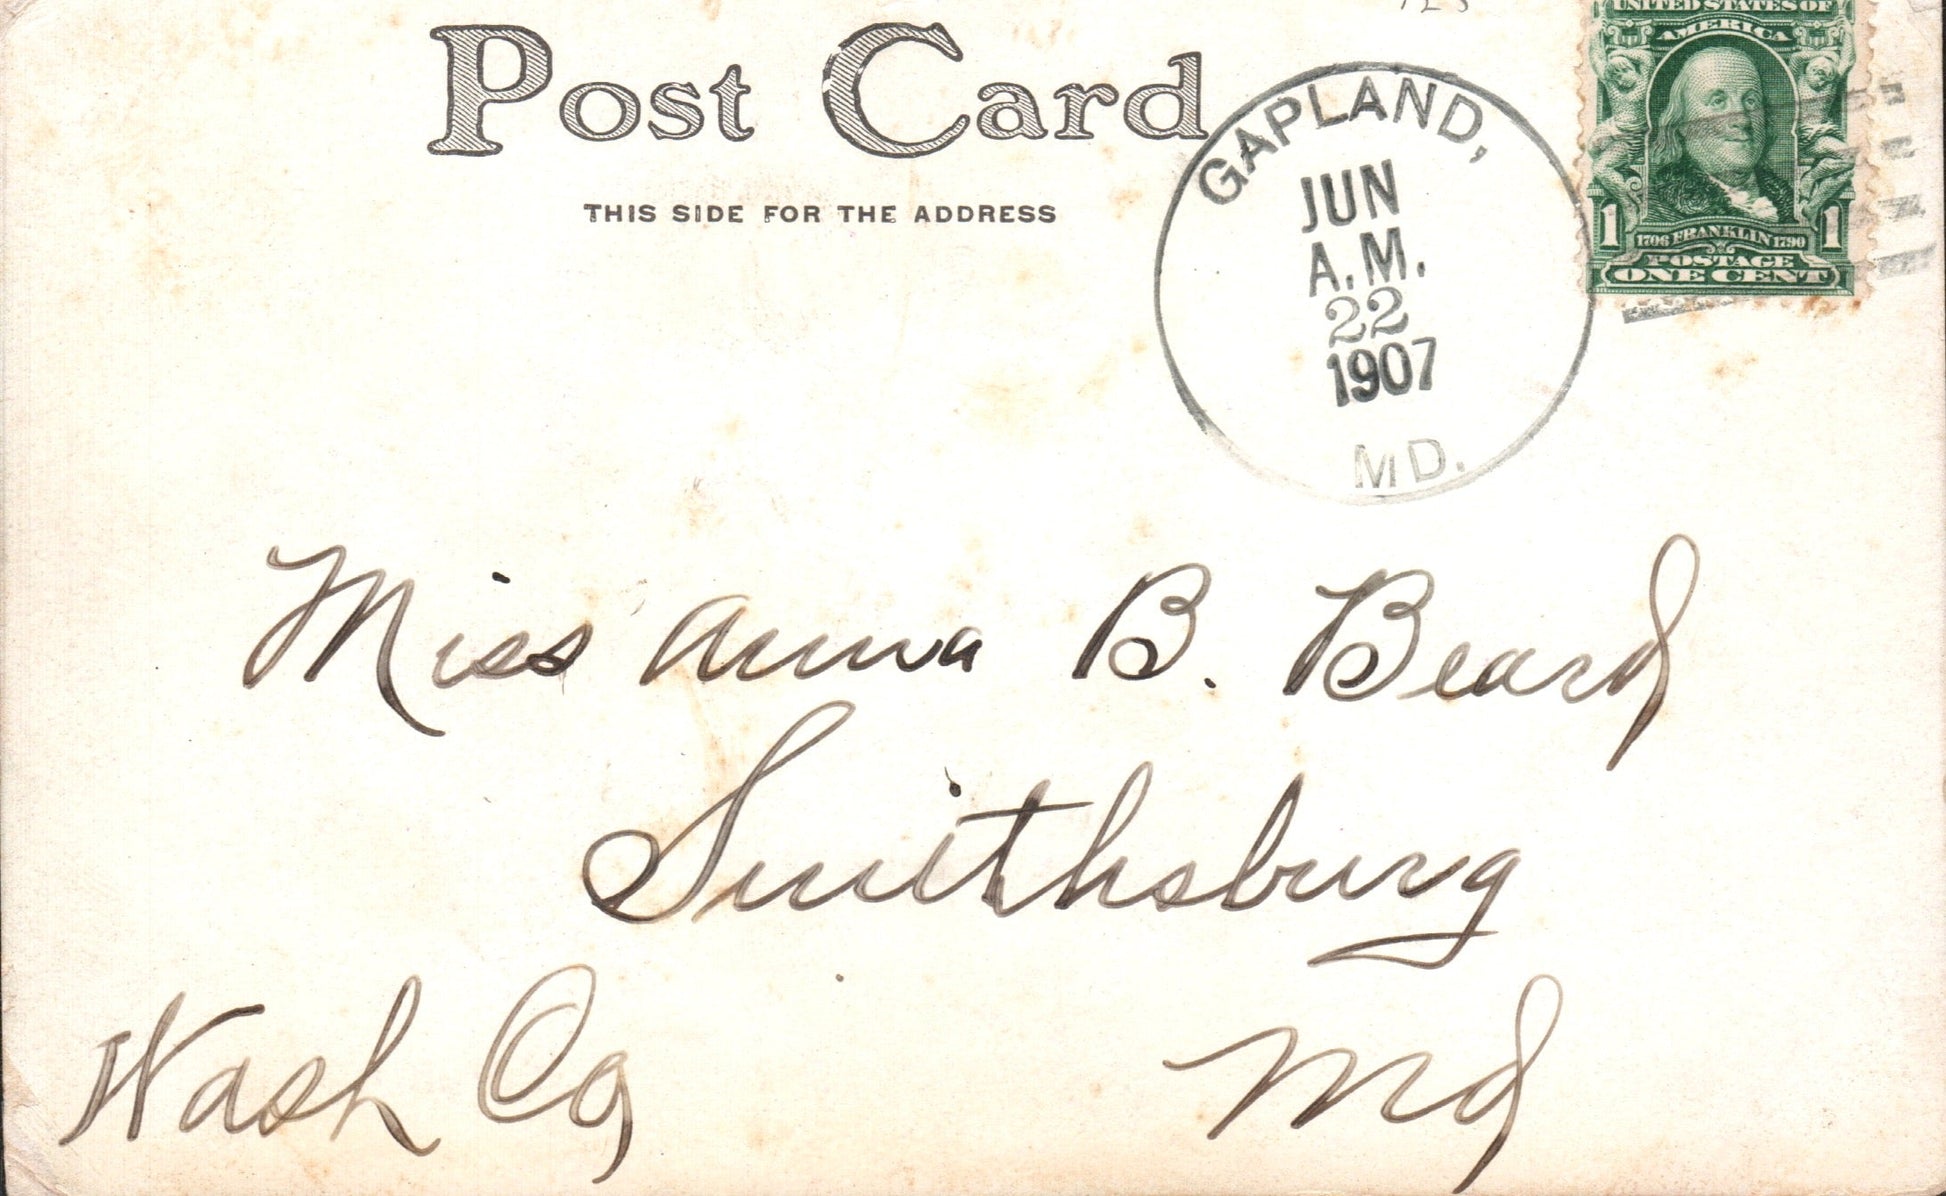 Post Card
THIS SIDE FOR THE ADDRESS
UNITED STATES OF
AMERICA
1 1706 FRANKLIN 1790 1
POSTAGE
ONE CENT
GAPLAND,
JUN
A.M.
22
1907
MD.
Miss Anna B. Beard
Smithsburg
Wash Co Md